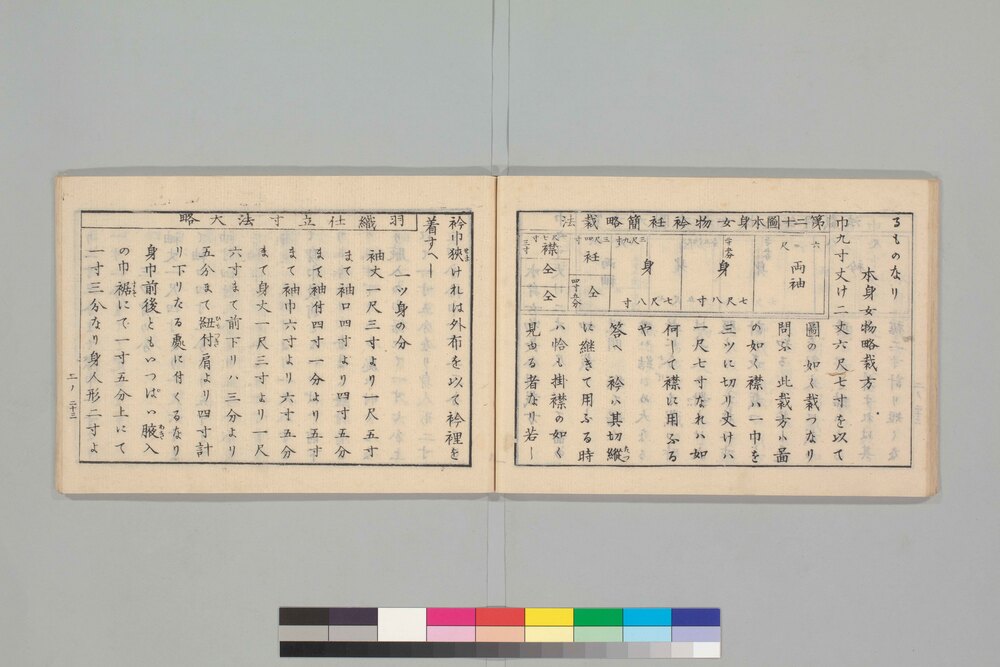 るものなり
本身女物略裁方
巾九寸丈け二丈六尺七寸を以て
第二十圖本身女物衿衽簡略裁法
六尺
両袖
身
七尺八寸
身
七尺八寸
三尺九寸
衽
仝
三尺四寸
四寸五分
襟
仝
仝
尺七寸
三寸
圖の如く裁つなり
問ふ 此裁方ハ圖
の如く襟ハ一巾を
三ツに切り丈けハ
一尺七寸なれハ如
何して襟に用ふる
や
答へ 衿ハ其切縦
に継きて用ふる時
ハ恰も掛襟の如く
見ゆる者なり若し
衿巾狭けれは外布を以て衿裡を
着すへし
羽織仕立寸法大略
一ツ身の分
袖丈一尺三寸より一尺五寸
まて袖口四寸より四寸五分
まて袖付四寸一分より五寸
まて袖巾六寸より六寸五分
まて身丈一尺三寸より一尺
六寸まて前下りハ三分より
五分まて紐付肩より四寸計
り下りたる處に付くるなり
身巾前後ともいつぱい腋入
の巾裾にて一寸五分上にて
一寸三分なり身人形二寸よ
二ノ二十三